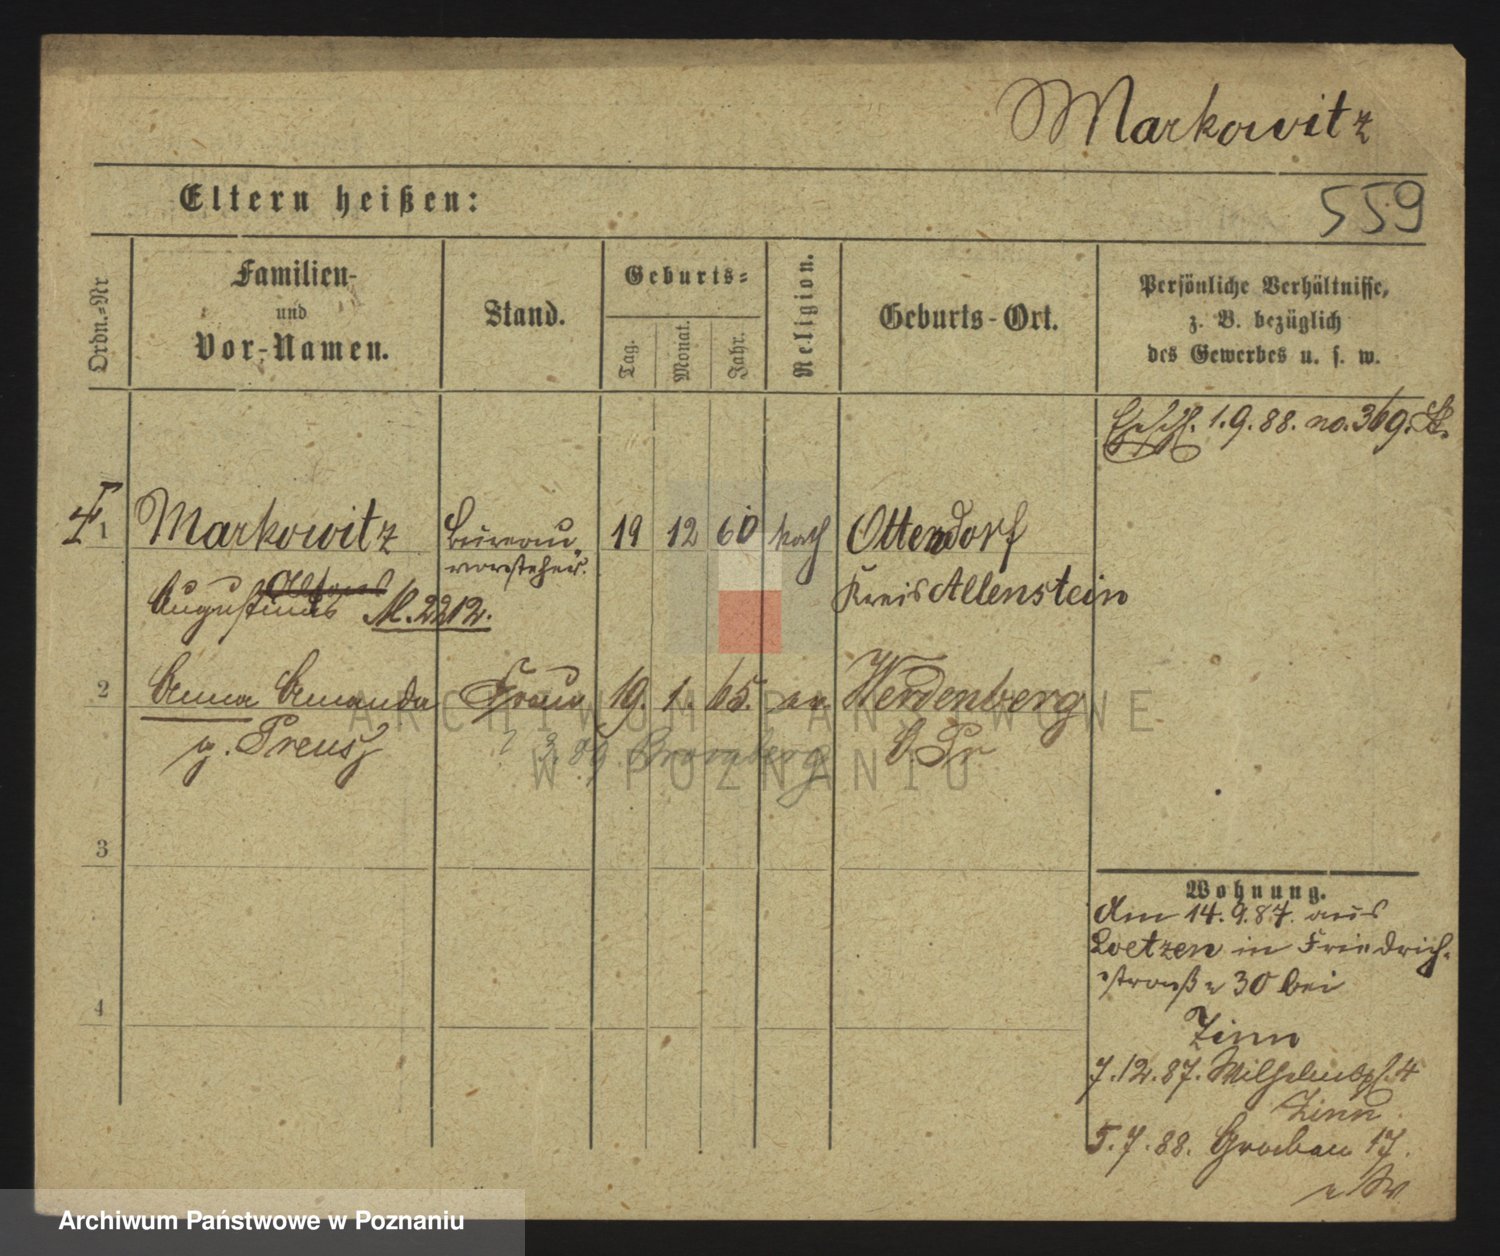 Markowitz
Eltern heißen:
559
Ordn.-Nr
Familien-
und
Vor-Namen.
Stand.
Geburts-
Tag.
Monat.
Jahr.
Religion.
Geburts-Ort.
Persönliche Verhältnisse,
z. B. bezüglich
des Gewerbes u. s. w.
1.9.88. no. 369.
1 Markowitz Bureau- 19 12 60 kath Ottendorf
vorsteher.
Kreis Allenstein
Augustinus M. 2212.
2 Anna Amanda Frau 19. 1. 65. ev Werdenberg
g. Preusz O Pr
3.89 Bromberg
3
4
Wohnung.
Am 14.9.87. aus
Loetzen in Friedrich-
straße 30 bei
Zinn
7.12.87. Wilhelmspl. 4
Zinn
5.7.88. Graben 17.
ARCHIWUM PAŃSTWOWE
W POZNANIU
Archiwum Państwowe w Poznaniu